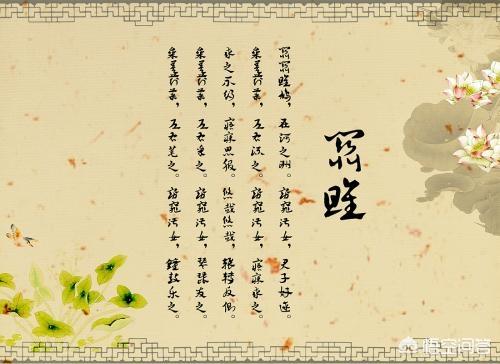 關雎
關關雎鳩，在河之洲。窈窕淑女，君子好逑。
參差荇菜，左右流之。窈窕淑女，寤寐求之。
求之不得，寤寐思服。悠哉悠哉，輾轉反側。
參差荇菜，左右采之。窈窕淑女，琴瑟友之。
參差荇菜，左右芼之。窈窕淑女，鐘鼓樂之。
悟空问答